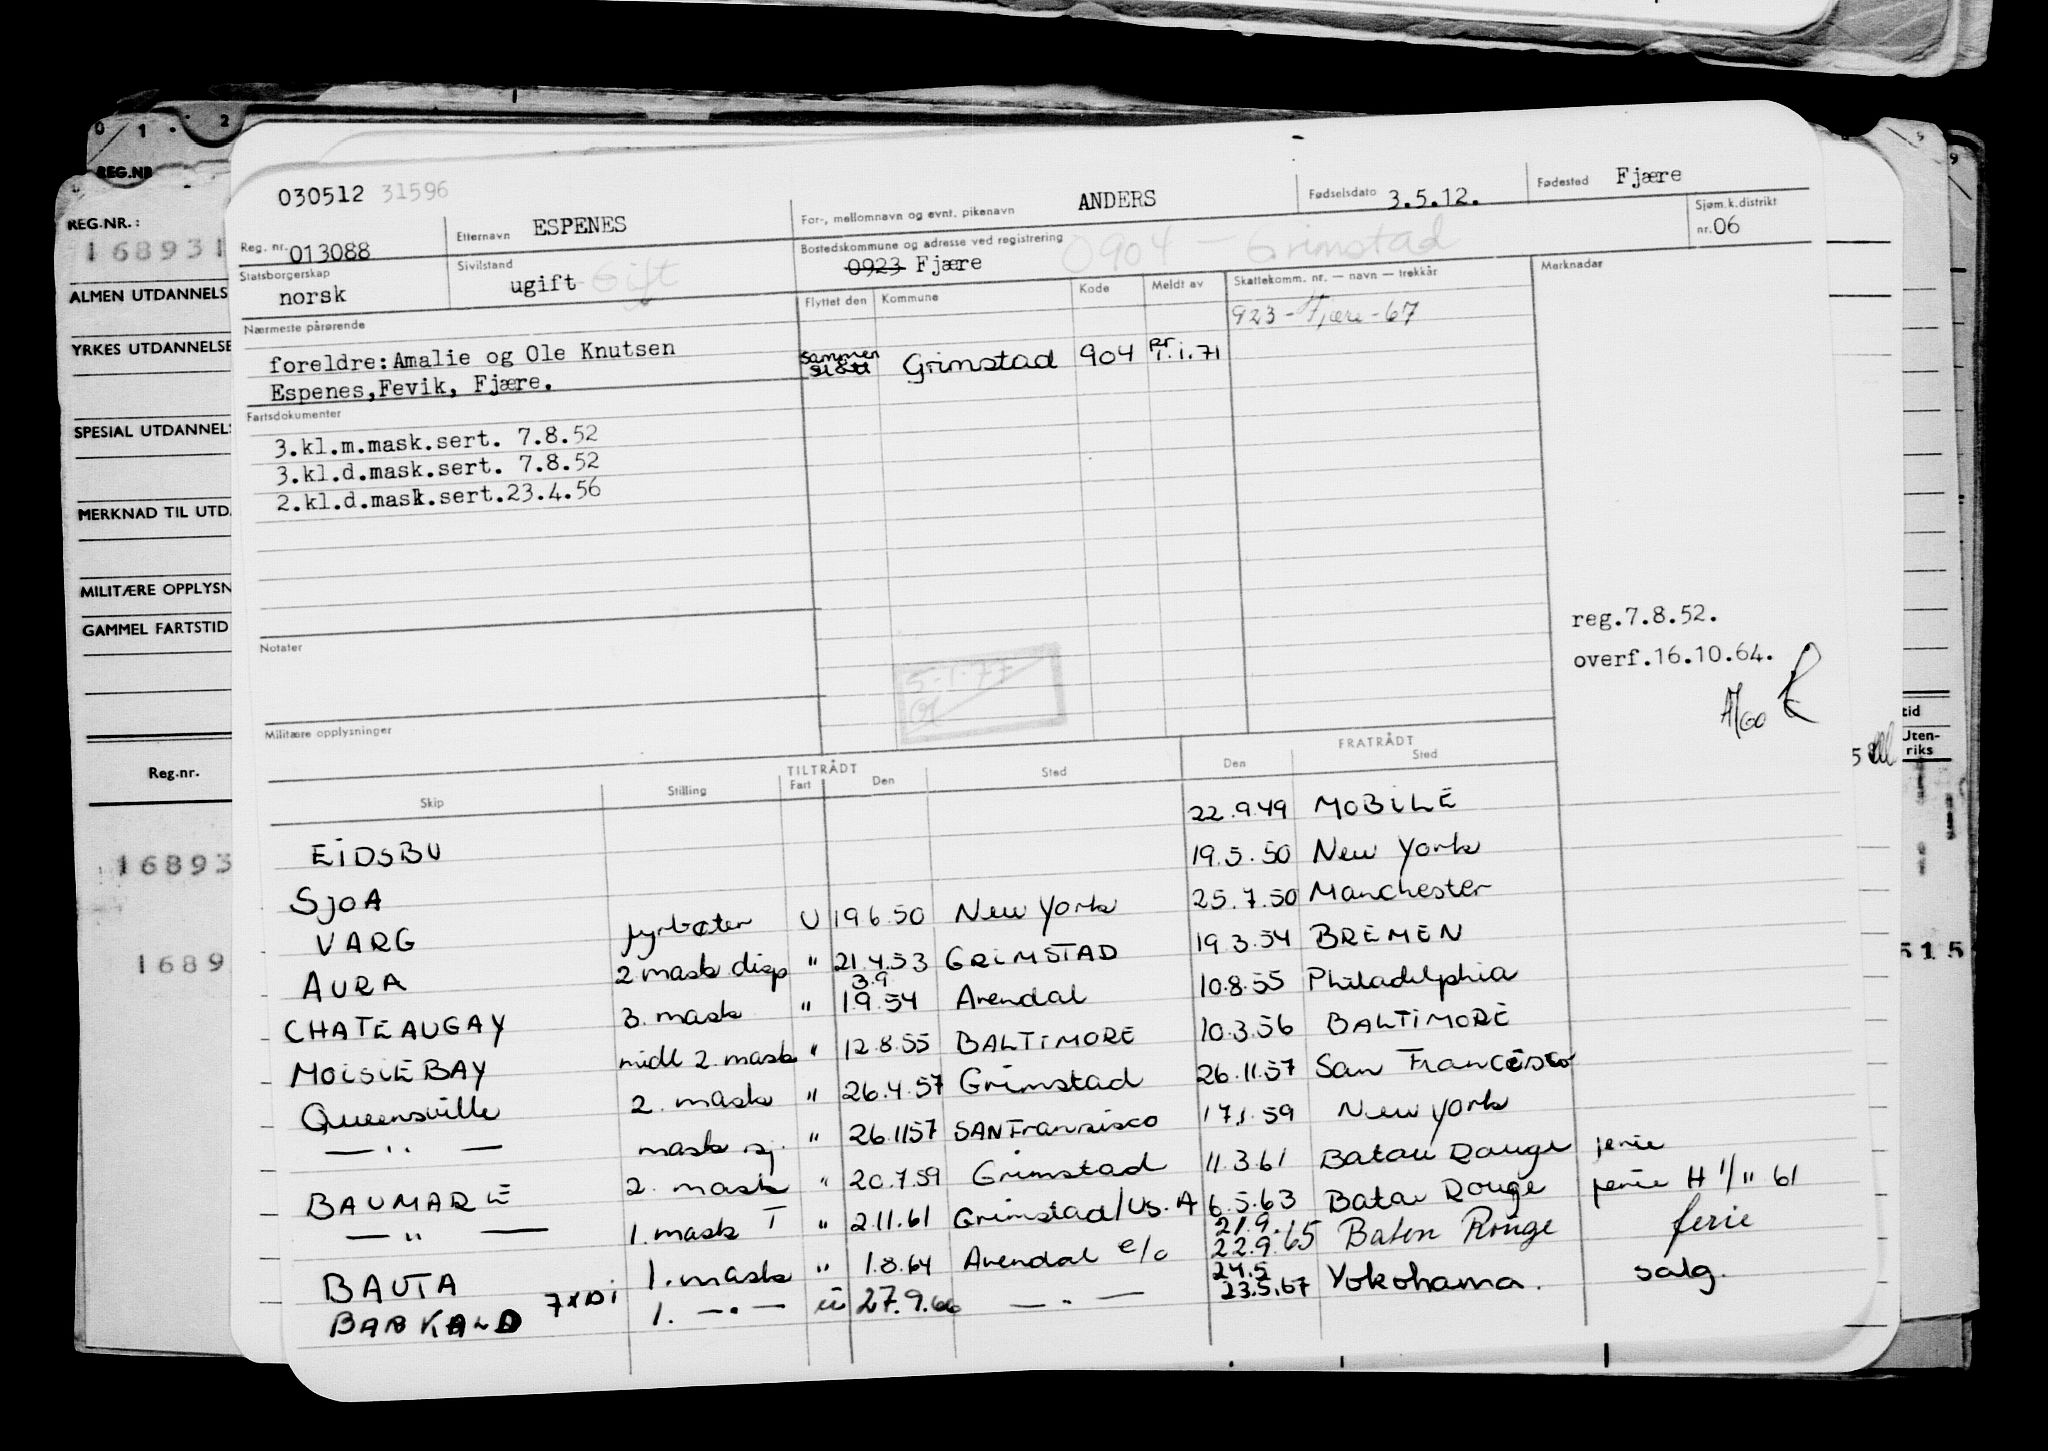 0 1 2
REG.NR
REG.NR.:
168931
ALMEN UTDANNELS
YRKES UTDANNELSE
SPESIAL UTDANNELS
MERKNAD TIL UTD.
MILITÆRE OPPLYSN
GAMMEL FARTSTID
Reg.nr.
16893
1689
030512 31596
Reg. nr. 013088
Etternavn ESPENES
For-, mellomnavn og evnt. pikenavn ANDERS
Fødselsdato 3.5.12.
Fødested Fjære
Statsborgerskap norsk
Sivilstand ugift Gift
Bostedskommune og adresse ved registrering 0904 - Grimstad
0923 Fjære
Sjøm.k.distrikt nr. 06
Nærmeste pårørende
foreldre: Amalie og Ole Knutsen
Espenes, Fevik, Fjære.
Flyttet den Kommune Kode Meldt av Skattekomm. nr. — navn — trekkår Merknader
923 - Fjære - 67
sammen slått Grimstad 904 pr 1.1.71
Fartsdokumenter
3.kl.m.mask.sert. 7.8.52
3.kl.d.mask.sert. 7.8.52
2.kl.d.mask.sert.23.4.56
Notater
5-1-77
reg.7.8.52.
overf.16.10.64.
Militære opplysninger
TILTRÅDT FRATRÅDT
Skip Stilling Fart Den Sted Den Sted
EIDSBU 22.9.49 MOBILE
SJOA 19.5.50 New York
VARG fyrbøter U 19 6.50 New York 25.7.50 Manchester
AURA 2 mask disp " 21.4.53 GRIMSTAD 19.3.54 BREMEN
CHATEAUGAY 3. mask " 3.9 1.9.54 Arendal 10.8.55 Philadelphia
MOISIE BAY midl 2. mask " 12.8.55 BALTIMORE 10.3.56 BALTIMORE
Queensville 2. mask " 26.4.57 Grimstad 26.11.57 San Francisco
— " — mask sj. " 26.1157 SAN Fransisco 17.1.59 New York
BAUMARE 2. mask " 20.7.59 Grimstad 11.3.61 Batou Rouge ferie
— " — 1. mask T " 2.11.61 Grimstad/US.A 6.5.63 Baton Rouge ferie H 1/11 61
BAUTA 1. mask " 1.8.64 Arendal e/o 21.9. 22.9.65 Baton Rouge ferie
BARKALD 7xDi 1. — " — ü 27.9.66 — " — 24.5 23.5.67 Yokohama. salg.
9
tid
Uten-
riks
515